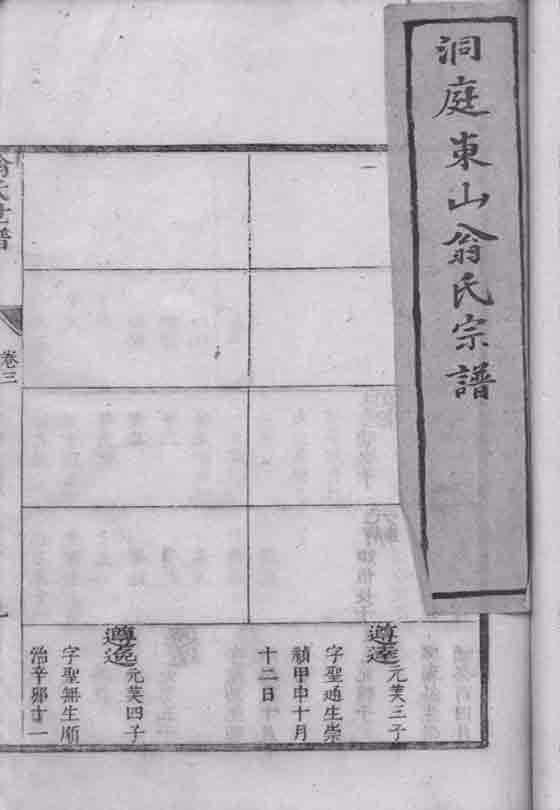 洞庭東山翁氏宗譜
遵逵 元芙三子
字聖通生崇
禎甲申十月
十二日
遵逸 元芙四子
字聖無生順
治辛卯十一
翁氏世譜
卷三